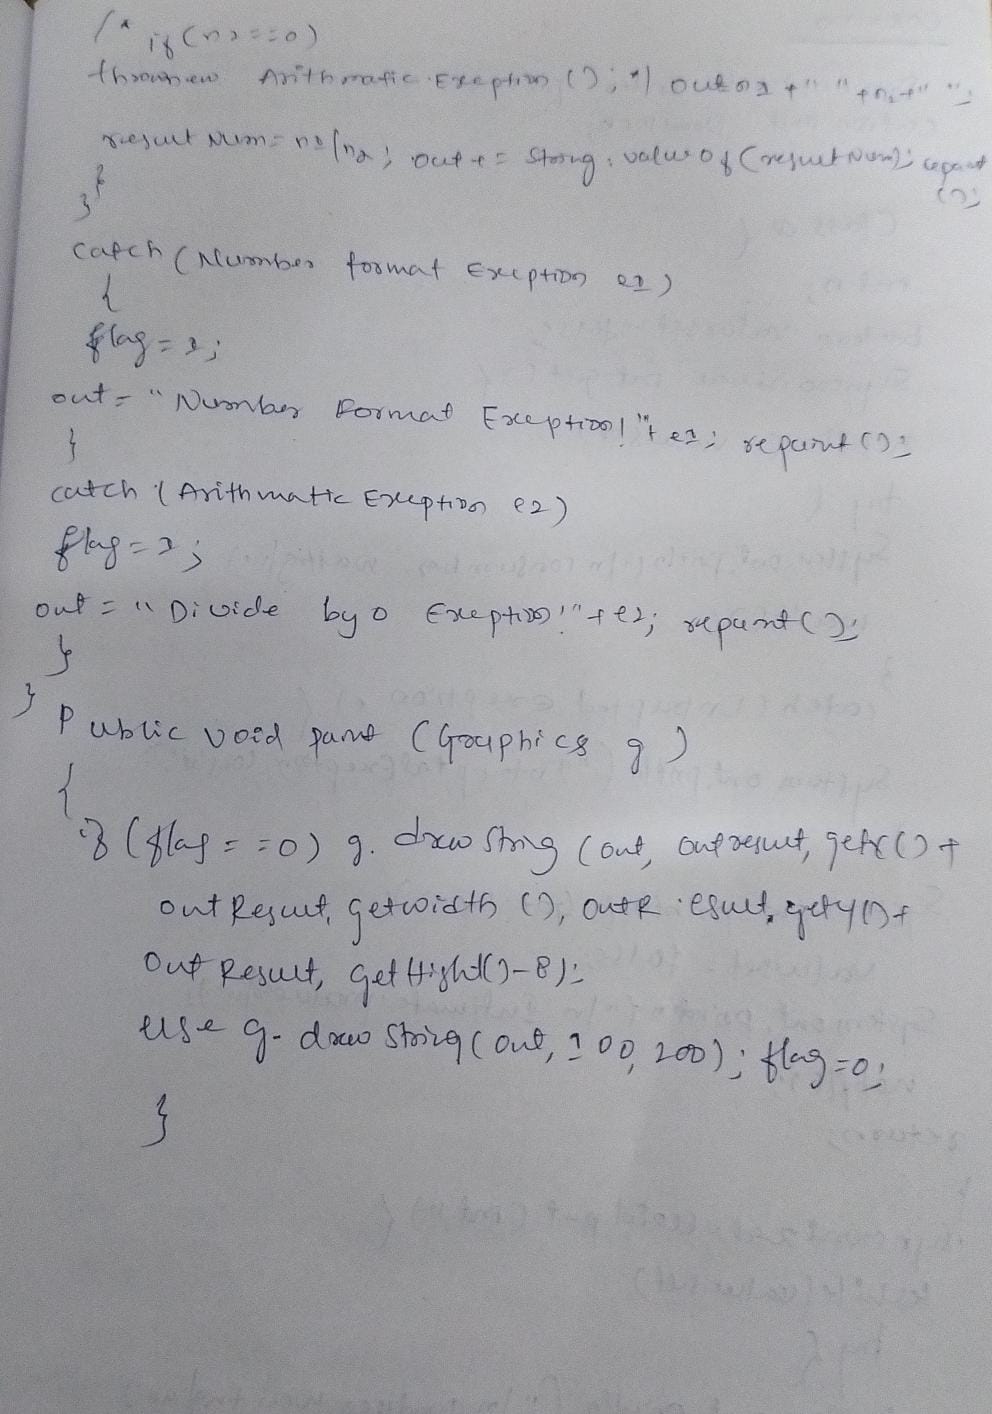 /* if (n2==0)
throw new Arithmatic Exception (); */ out = n1 + " " + n2 + " " =
result Num = n1/n2; out += String. value of (result Num); repaint ();
}
}
catch (Number format Exception e1)
{
flag = 1;
out = "Number Format Exception! " + e1; repaint ();
}
catch (Arithmatic Exception e2)
flag = 1;
out = "Divide by 0 Exception!" + e2; repaint ();
}
}
Public void paint (Graphics g)
{
if (flag == 0) g. draw String (out, out result, getx () +
out Result, getwidth (), outR esult, gety () +
Out Result, get Hight() - 8);
else g. draw String (out, 100, 200); flag = 0;
}